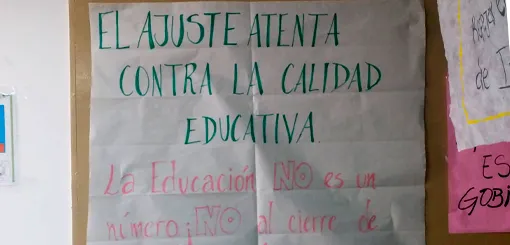 EL AJUSTE ATENTA
CONTRA LA CALIDAD
EDUCATIVA.
La Educación NO es un
número ¡NO al cierre de
de I
ES
GOBI